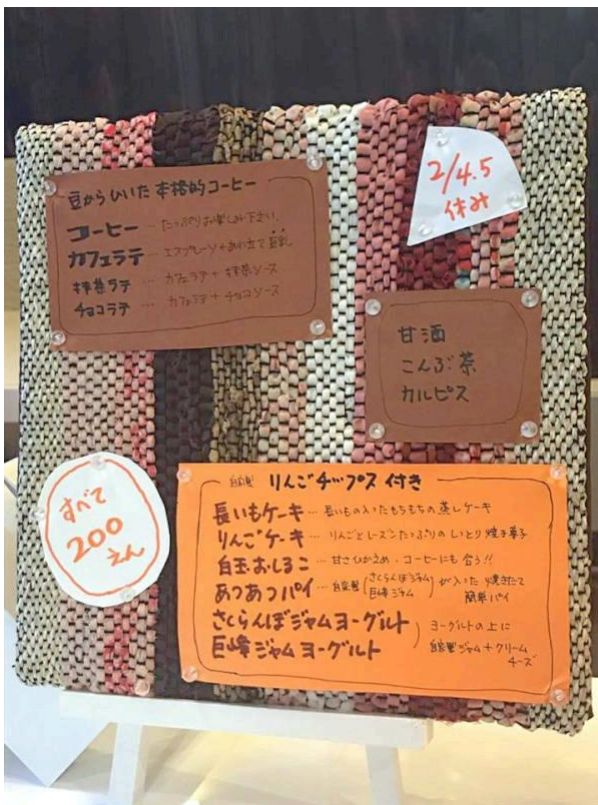 豆からひいた本格的コーヒー
コーヒー … たっぷりお楽しみ下さい。
カフェラテ … エスプレッソ+あわ立て豆乳
抹茶ラテ … カフェラテ+抹茶ソース
チョコラテ … カフェラテ+チョコソース
2/4.5
休み
甘酒
こんぶ茶
カルピス
すべて
200
えん
自家製 りんごチップス付き
長いもケーキ … 長いもの入ったもちもちの蒸しケーキ
りんごケーキ … りんごとレーズンたっぷりのしっとり焼き菓子
白玉おしるこ … 甘さひかえめ・コーヒーにも合う!!
あつあつパイ … 自家製(さくらんぼジャム 巨峰ジャム)が入った焼きたて簡単パイ
さくらんぼジャムヨーグルト
巨峰ジャムヨーグルト
ヨーグルトの上に
自家製ジャム+クリーム
チーズ